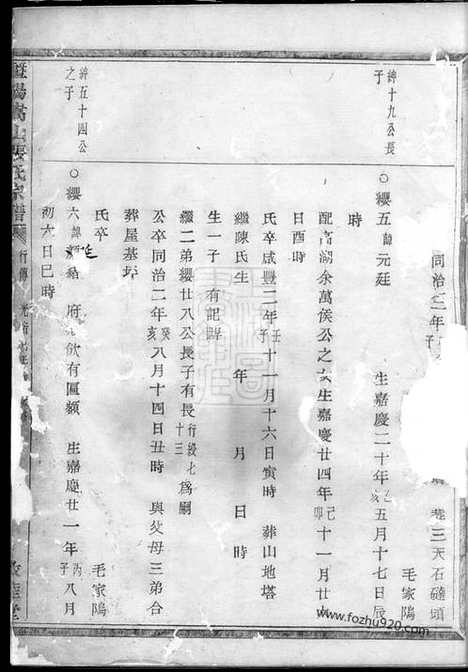 同治三年子
卷三天石磋頭
紳十九公長
子
○纓五諱元廷 生嘉慶二十年乙亥五月十七日辰
毛家隖
時
配高湖余萬侯公之女生嘉慶廿四年己卯十一月廿
日酉時
氏卒咸豐二年壬子十一月十六日寅時 葬山地塔
繼陳氏生 年 月 日 時
生一子 有記歸
繼二弟纓廿八公長子有長行綬七十三為嗣
公卒同治二年癸亥八月十四日丑時 與父母三弟合
葬屋基坪
氏卒
紳五十四公
之子
○纓六諱 府 飲有匾額 生嘉慶廿一年丙子八月
毛家隖
初六日巳時
暨陽高山張氏宗譜 行傳
www.fozhu920.com